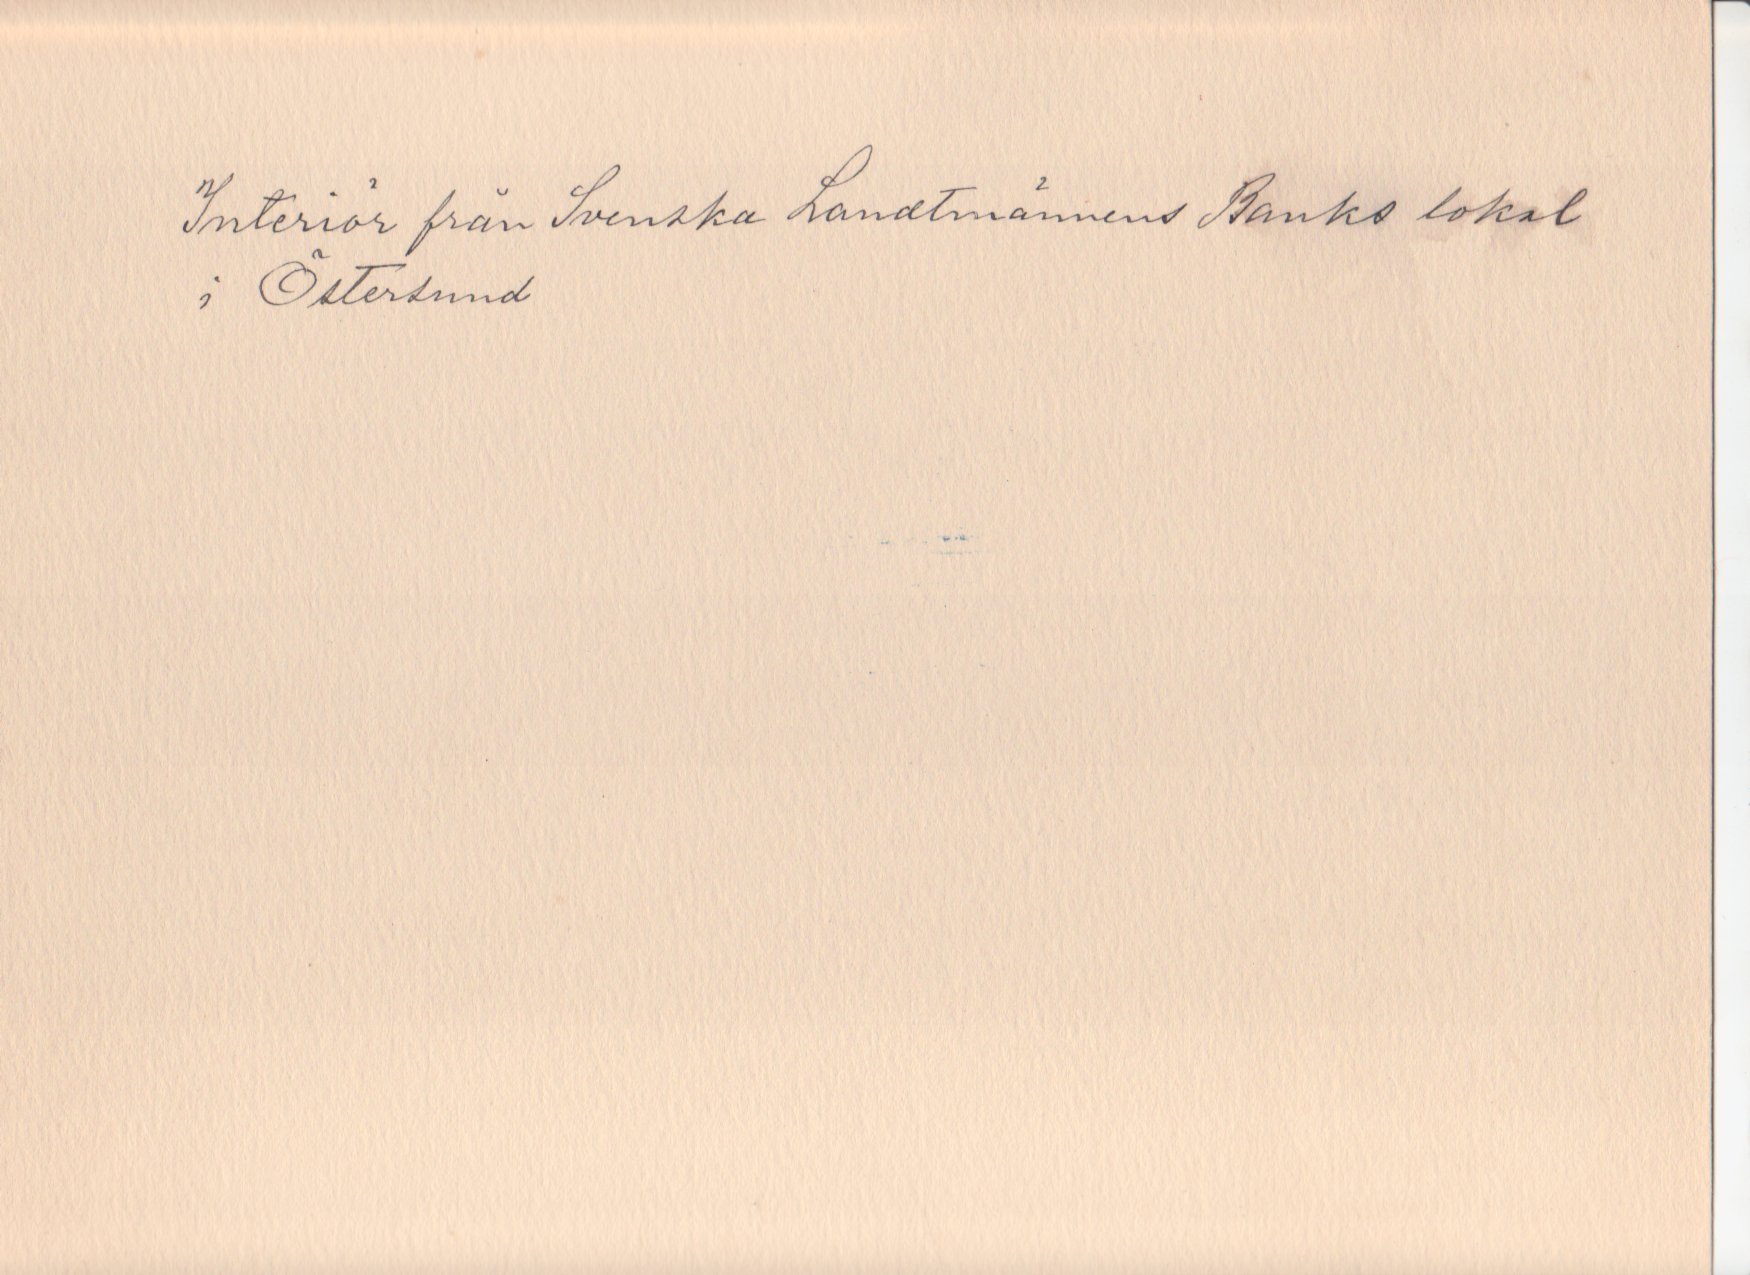 Interiör från Svenska Landtmännens Banks lokal
i Östersund